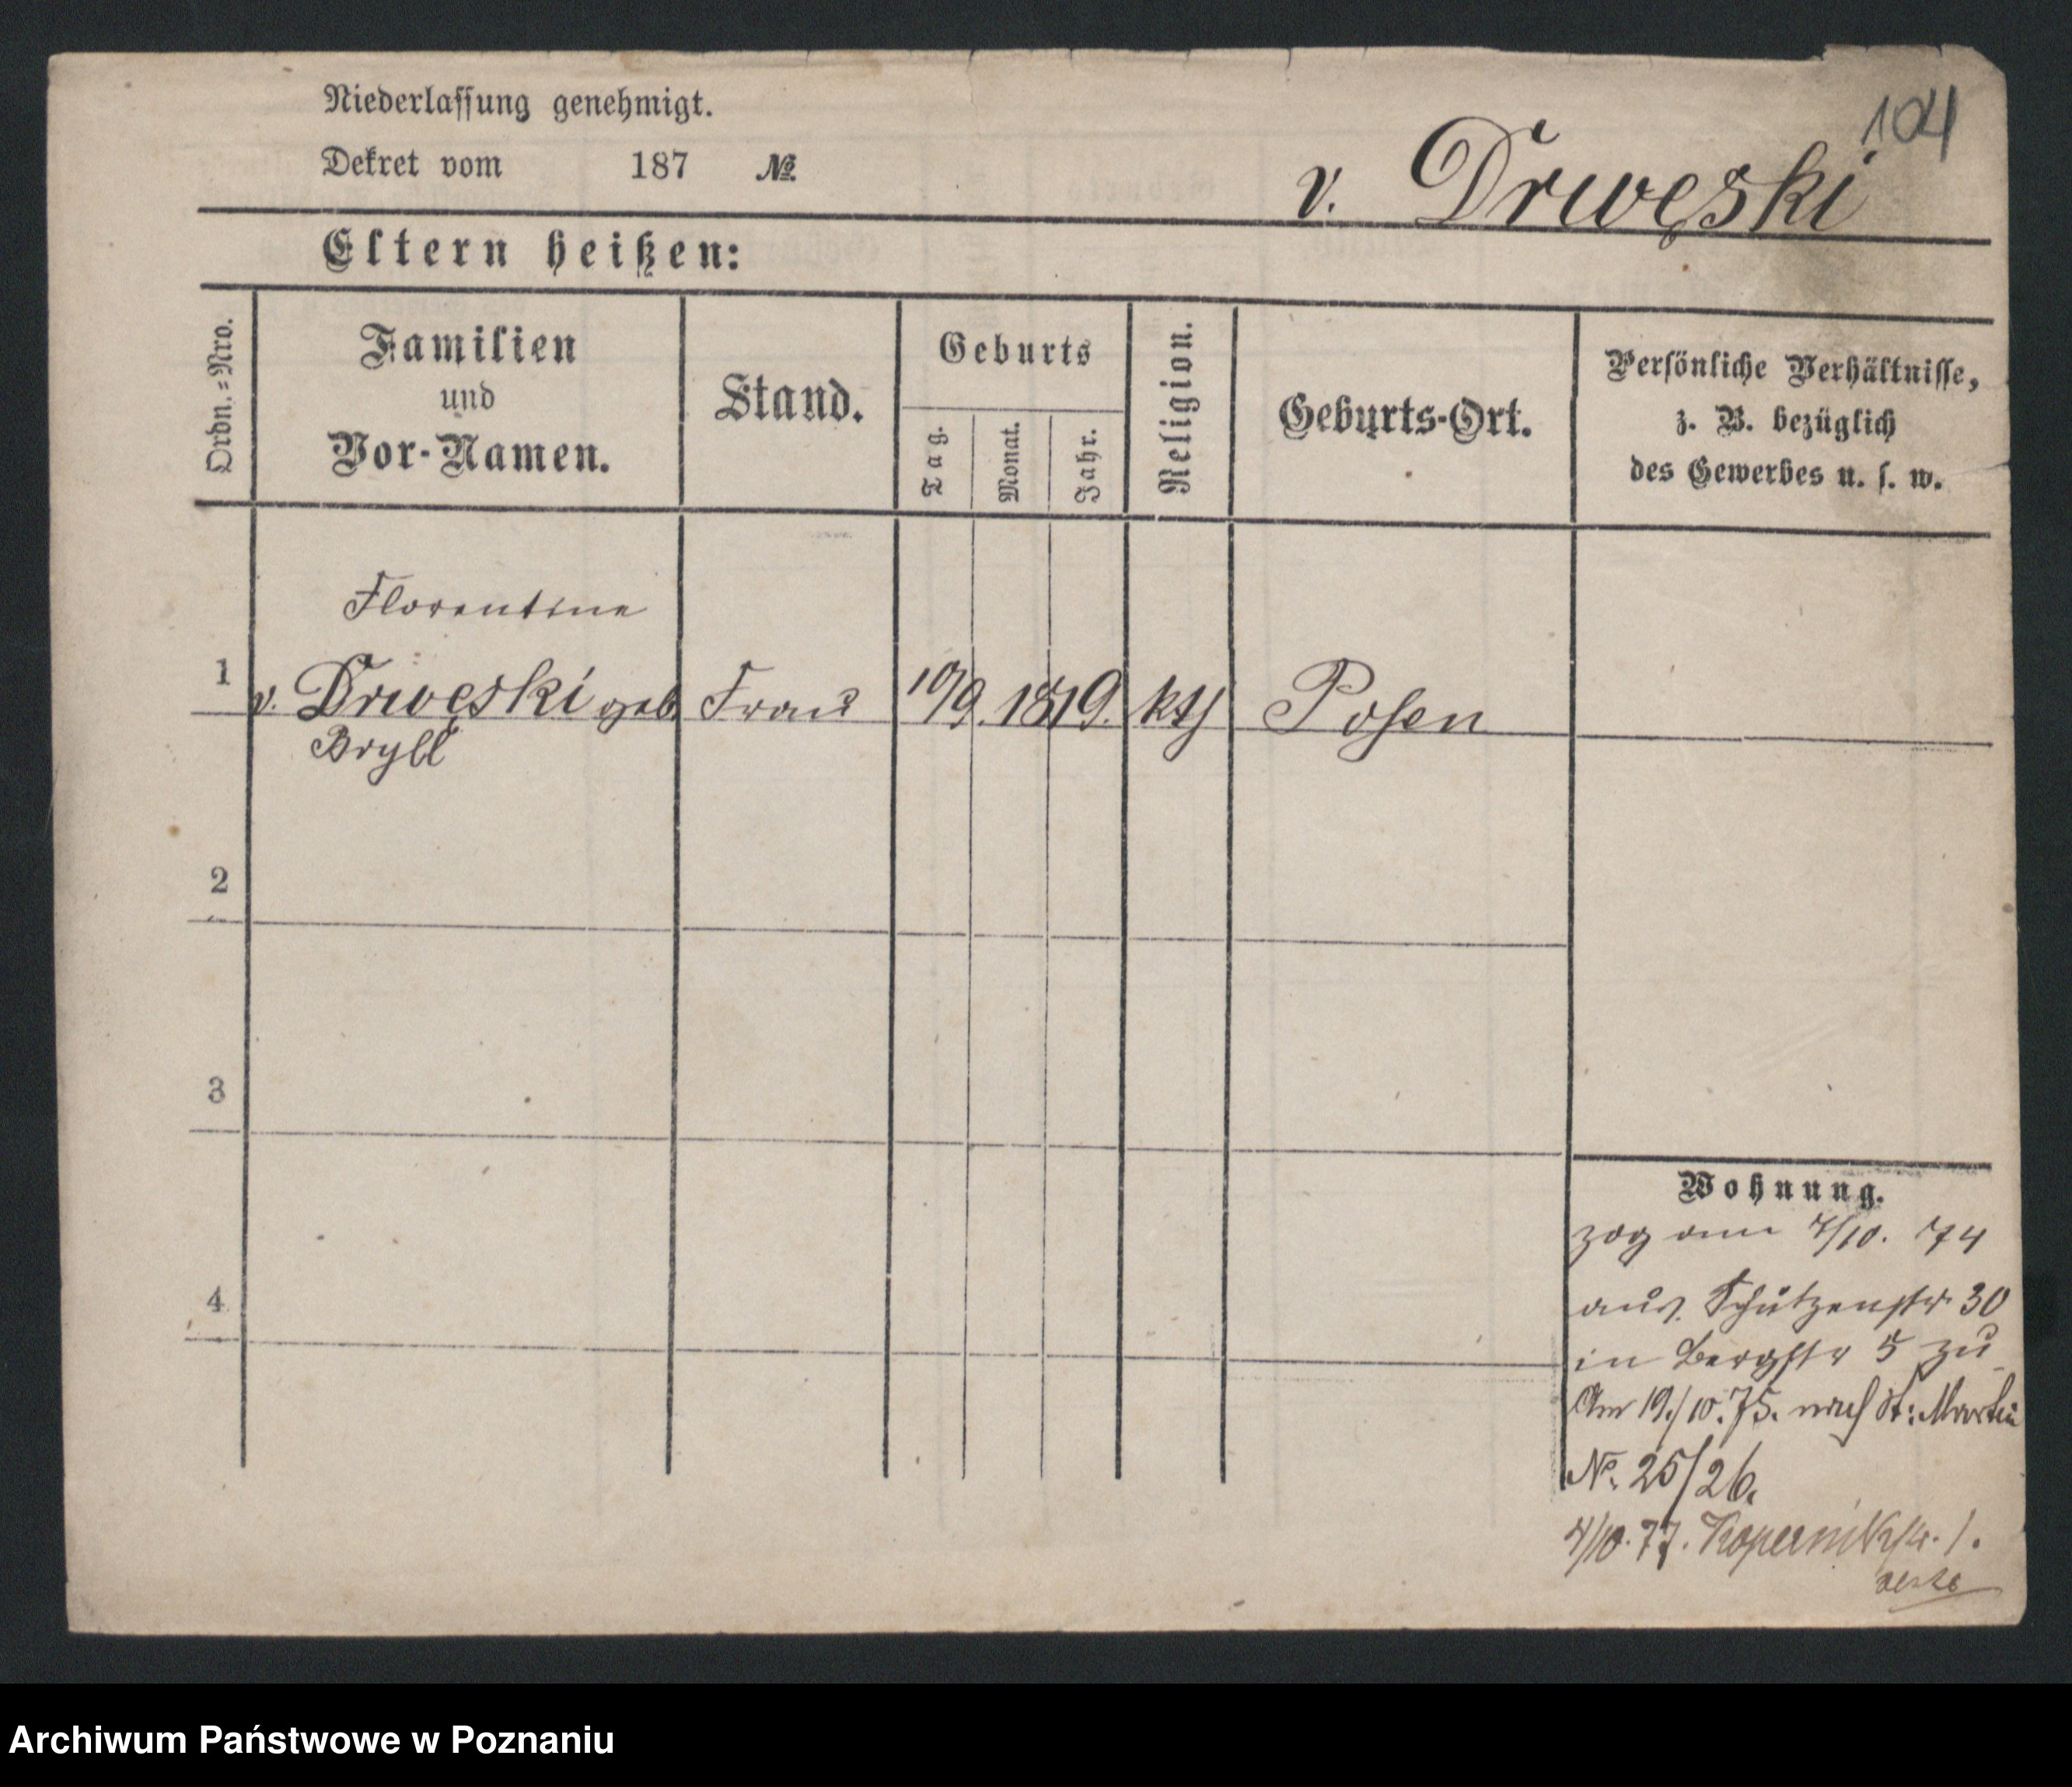 104
Niederlassung genehmigt.
Dekret vom 187 №
v. Drwęski
Eltern heißen:
Ordn.=Nro.
Familien
und
Vor-Namen.
Stand.
Geburts
Tag.
Monat.
Jahr.
Religion.
Geburts-Ort.
Persönliche Verhältnisse,
z. B. bezüglich
des Gewerbes u. s. w.
Florentine
1 v. Drwęski geb Frau 10/9. 1819. kth Posen
Bryll
2
3
4
Wohnung.
zog am 7/10. 74
aus. Schützenstr 30
in Bergstr 5 zu
Am 19./10. 75. nach St: Martin
No. 25/26.
4/10. 77. Kopernikstr. 1.
Archiwum Państwowe w Poznaniu